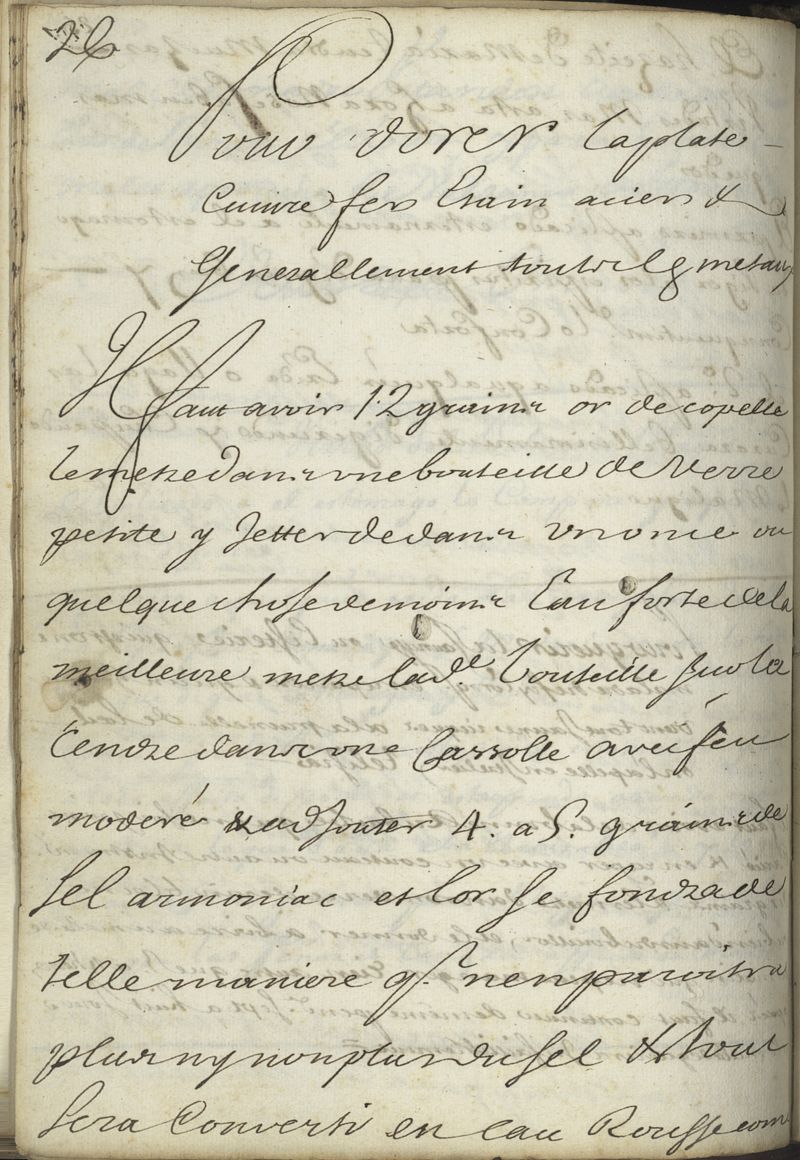 26
Pour dorer la plate
Cuivre fer Etain acier &
Generallement tout les metaux
Il faut avoir 12 grains or de copelle
le metre dans une bouteille de verre
petite y Jetter dedans un once ou
quelque chose de moins Eau forte de la
meilleure metre lad.e bouteille sur la
Cendre dans une Cassolle avec feu
moderé & adjouter 4. a 5. grains de
Sel armoniac et lor se fondra de
telle maniere q.l nen paroitra
plus ny non plus du sel & tout
Sera Converti en eau Rousse com